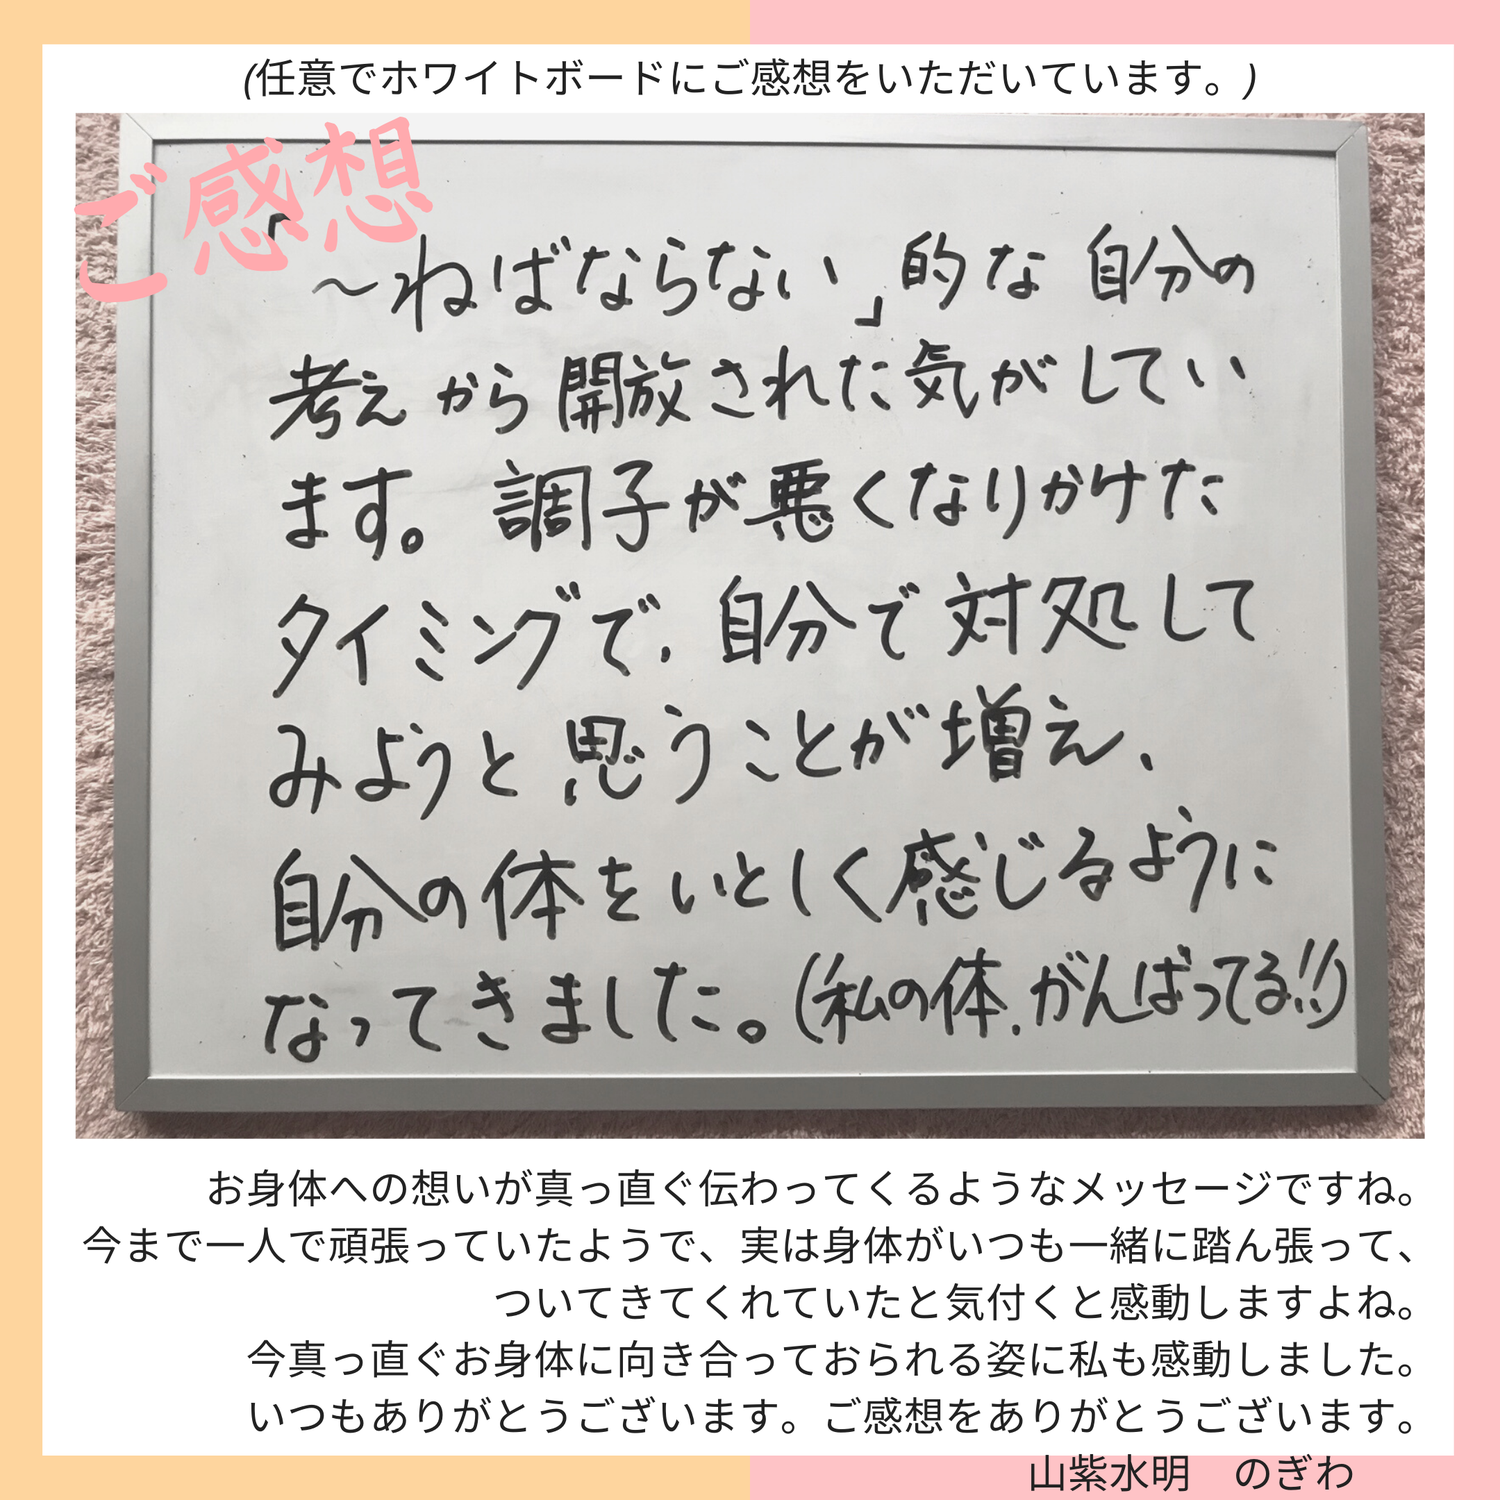 (任意でホワイトボードにご感想をいただいています。)
ご感想
「～ねばならない」的な自分の
考えから開放された気がしてい
ます。調子が悪くなりかけた
タイミングで、自分で対処して
みようと思うことが増え、
自分の体をいとしく感じるように
なってきました。(私の体、がんばってる!!)
お身体への想いが真っ直ぐ伝わってくるようなメッセージですね。
今まで一人で頑張っていたようで、実は身体がいつも一緒に踏ん張って、
ついてきてくれていたと気付くと感動しますよね。
今真っ直ぐお身体に向き合っておられる姿に私も感動しました。
いつもありがとうございます。ご感想をありがとうございます。
山紫水明　のぎわ